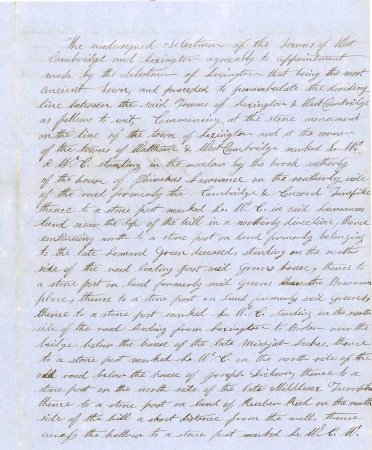 The undersigned Selectmen of the Towns of West
Cambridge and Lexington agreeably to appointment
made by the Selectmen of Lexington that being the most
ancient Town, and proceeded to perambulate the dividing
line between the said Towns of Lexington & West Cambridge
as follows to wit Commencing at the stone monument
on the line of the town of Lexington and at the corner
of the towns of Waltham & West Cambridge marked L. W.
& W. C. standing in the meadow by the brook southerly
of the house of Lawrence on the southerly side
of the road formerly the Cambridge & Concord Turnpike
thence to a stone post marked L. W. C. in said Lawrences
land near the top of the hill in a northerly direction, thence
continuing north to a stone post on land formerly belonging
to the late Leonard Green deceased, standing on the north
side of the road leading past said Greens house, thence to
a stone post on land formerly said Greens the Bowman
place, thence to a stone post on land formerly said Greens,
thence to a stone post marked L. W. C. standing on the north
side of the road leading from Lexington to Boston near the
bridge below the house of the late Lockes, thence
to a stone post marked L. W. C. on the north side of the
old road below the house of Joseph thence to a
stone post on the north side of the late Middlesex Turnpike
thence to a stone post on land of Reuben Reed on the north
side of the hill a short distance from the wall, thence
across the hollow to a stone post marked L. W. C. W.